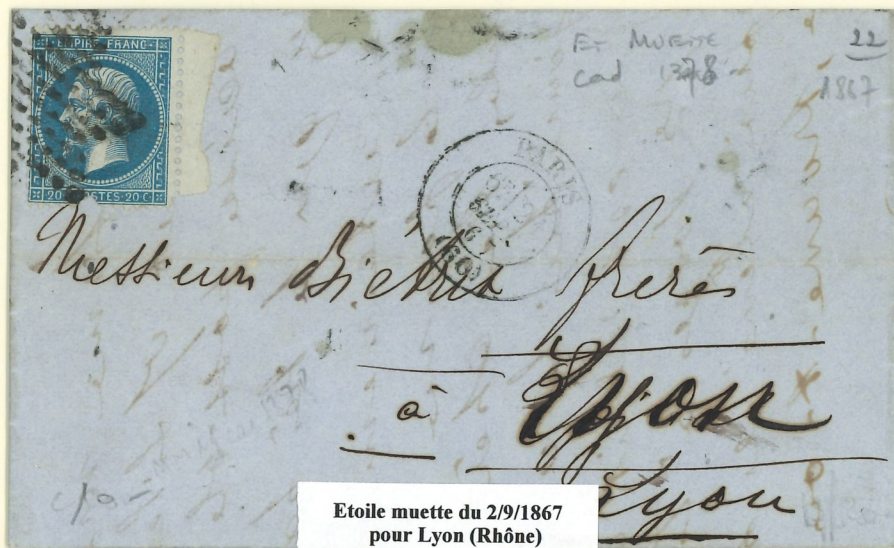 EMPIRE FRANC
20 POSTES 20 C
Et Muette
cad 1378
22
1867
PARIS
2
SEPT
67
(60)
Messieurs Biétrix frères
à Lyon
Lyon
Etoile muette du 2/9/1867
pour Lyon (Rhône)